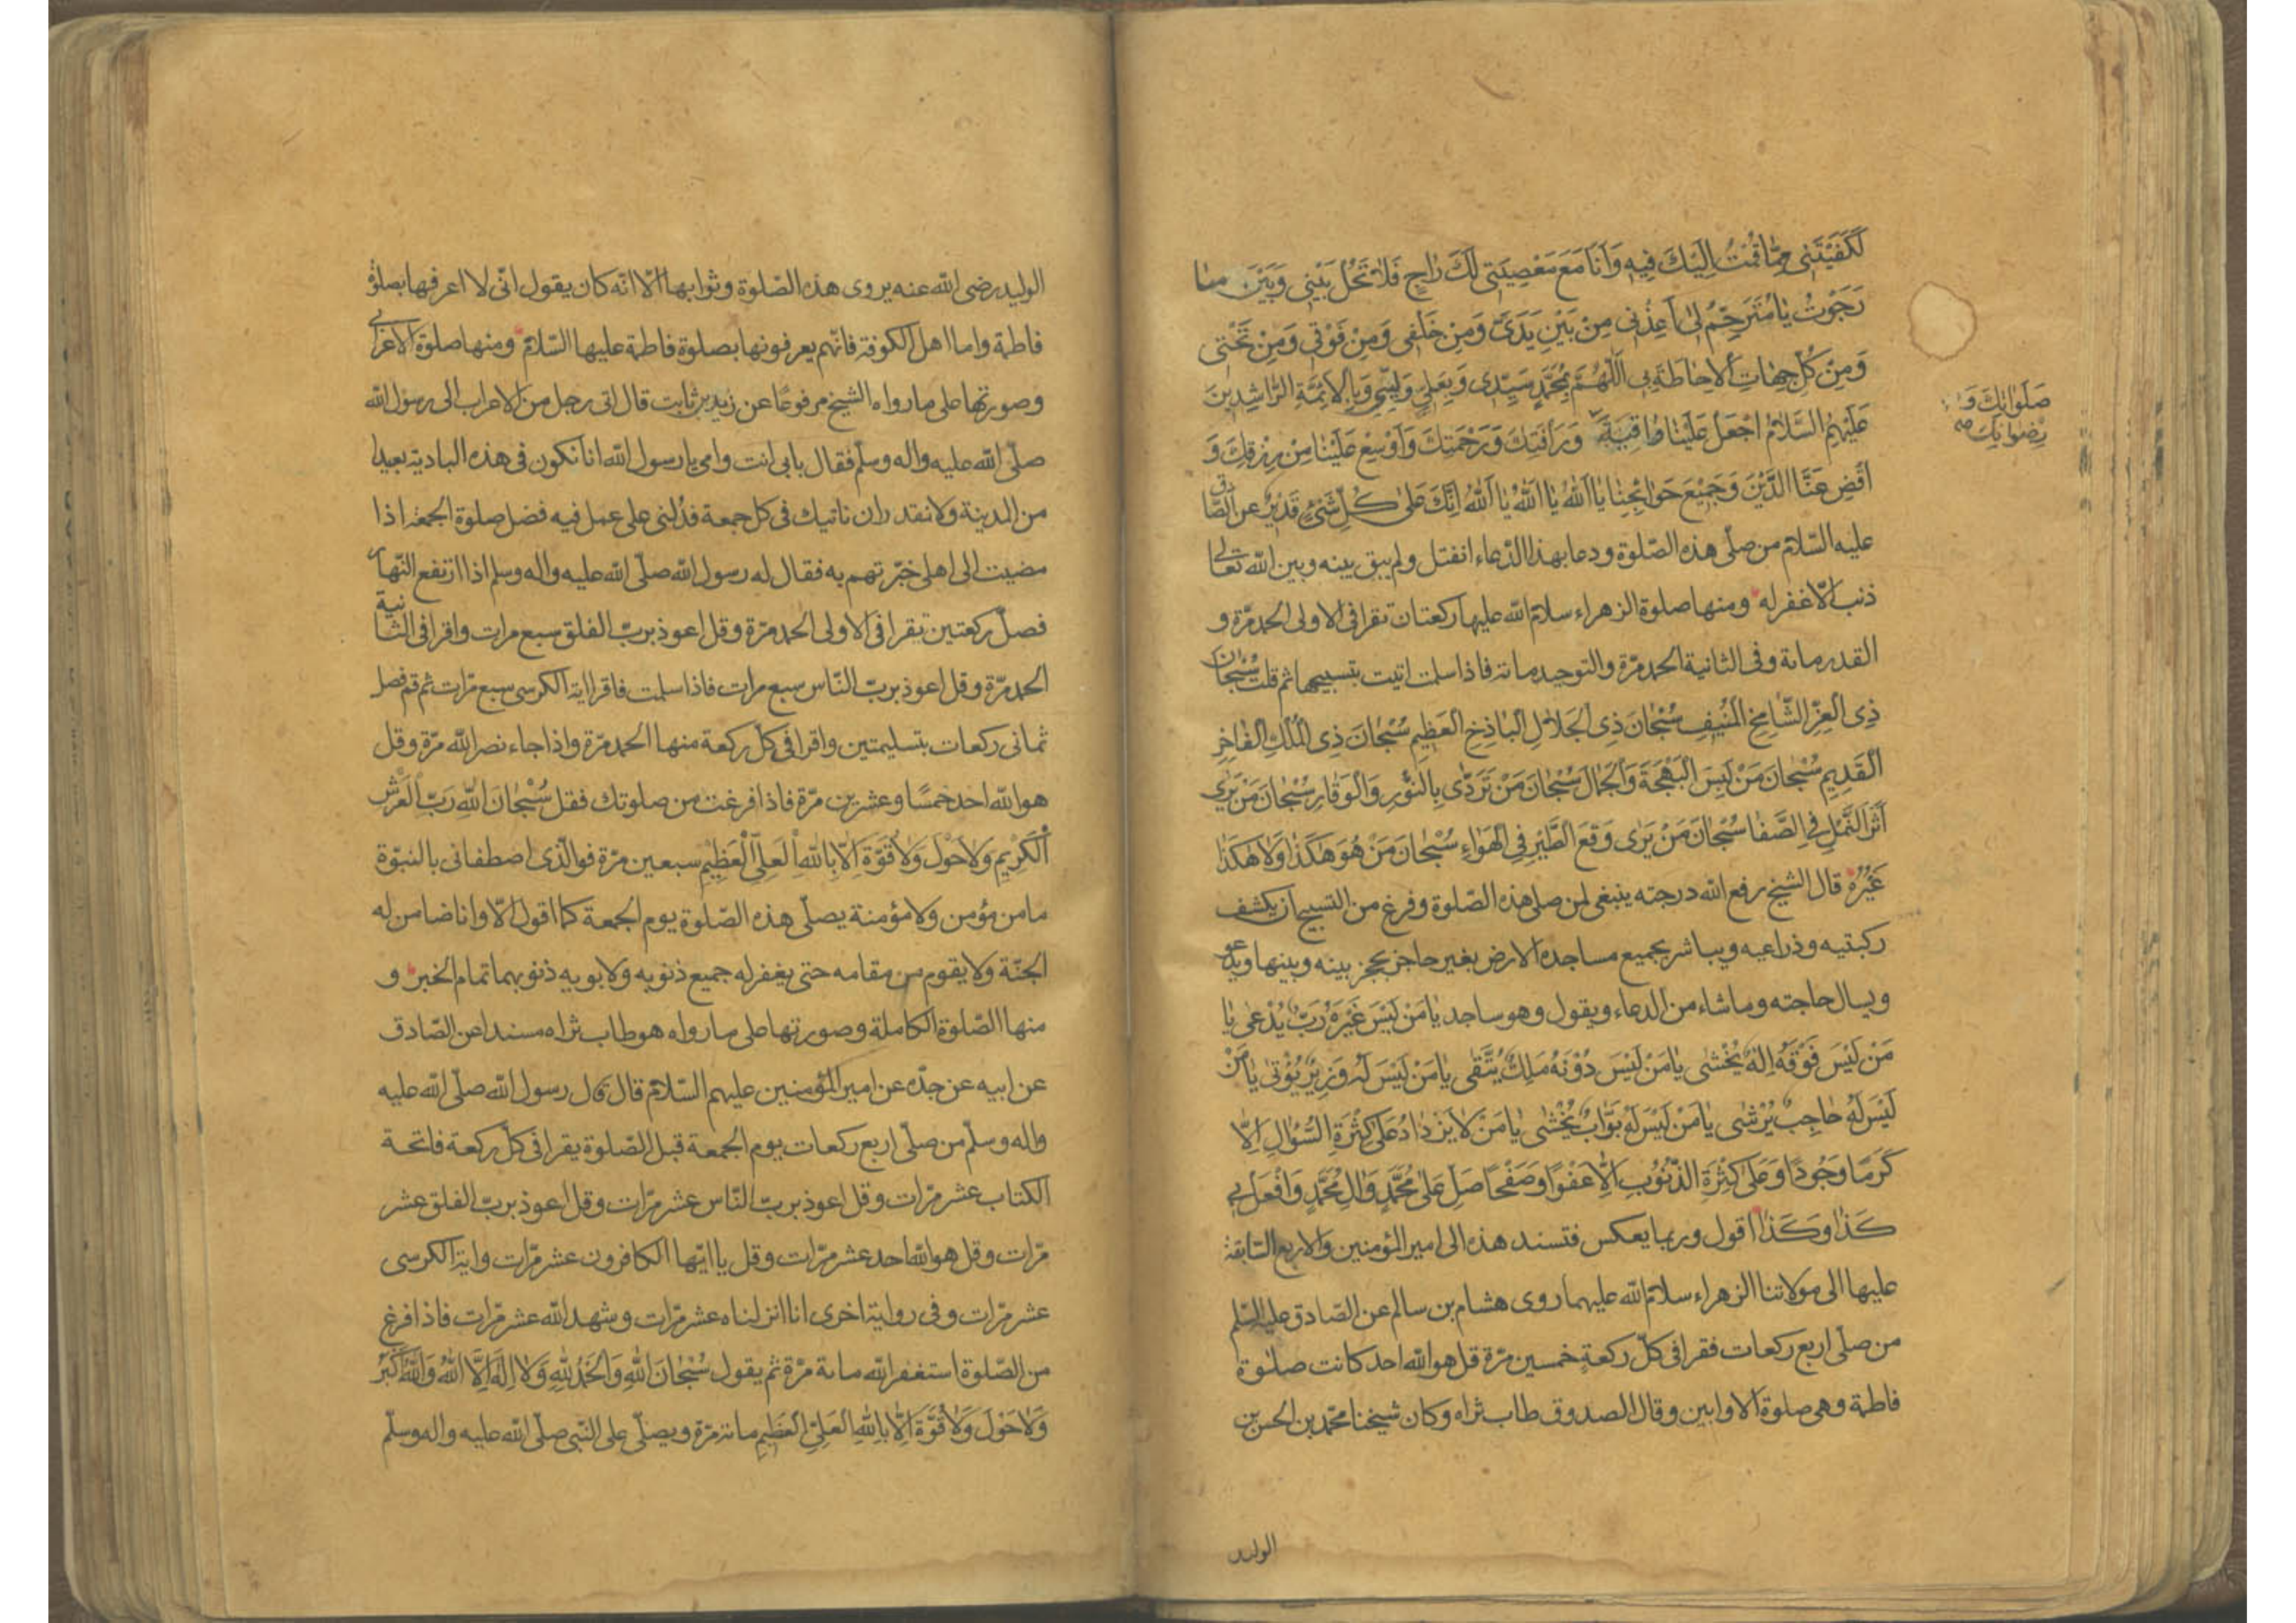 لَكَفَيْتَنِي مِمَّا قُمْتُ اِلَيْكَ فِيهِ وَاَنَا مَعَ مَعْصِيَتِي لَكَ رَاجٍ فَلَا تَحُلْ بَيْنِي وَبَيْنَ ما
رَجَوْتُ يَا مُتَرَحِّمُ لِي اَعِذْنِي مِنْ بَيْنِ يَدَيَّ وَمِنْ خَلْفِي وَمِنْ فَوْقِي وَمِنْ تَحْتِي
وَمِنْ كُلِّ جِهَاتِ الْاِحَاطَةِ بِي اَللّٰهُمَّ بِمُحَمَّدٍ سَيِّدِي وَبِعَلِيٍّ وَلِيِّي وَبِالْاَئِمَّةِ الرَّاشِدِينَ
عَلَيْهِمُ السَّلَامُ اجْعَلْ عَلَيْنَا وَرَأْفَتَكَ وَرَحْمَتَكَ وَاَوْسِعْ عَلَيْنَا مِنْ رِزْقِكَ وَ
صَلَوَاتِكَ وَ
اقْضِ عَنَّا الدَّيْنَ وَجَمِيْعَ حَوَائِجِنَا يَا اَللهُ يَا اَللهُ يَا اَللهُ اِنَّكَ عَلَى كُلِّ شَيْءٍ قَدِيْرٌ عن الصّادق
عليه السّلام من صلّى هذه الصّلوة ودعا بهذا الدّعاء انفتل ولم يبق بينه وبين الله تعالى
ذنب الّا غفر له ومنها صلوة الزهراء سلام الله عليها ركعتان تقرا في الاولى الحمد مرّة و
القدر مائة وفي الثانية الحمد مرّة والتوحيد مائة فاذا سلمت اتيت بتسبيحها ثم قلت سُبْحَانَ
ذِي الْعِزِّ الشَّامِخِ الْمُنِيفِ سُبْحَانَ ذِي الْجَلَالِ الْبَاذِخِ الْعَظِيمِ سُبْحَانَ ذِي الْمُلْكِ الْفَاخِرِ
الْقَدِيمِ سُبْحَانَ مَنْ لَبِسَ الْبَهْجَةَ وَالْجَمَالَ سُبْحَانَ مَنْ تَرَدَّى بِالنُّوْرِ وَالْوَقَارِ سُبْحَانَ مَنْ يَرَى
اَثَرَ النَّمْلِ فِي الصَّفَا سُبْحَانَ مَنْ يَرَى وَقْعَ الطَّيْرِ فِي الْهَوَاءِ سُبْحَانَ مَنْ هُوَ هٰكَذَا وَلَا هٰكَذَا
غَيْرُهُ قال الشيخ رفع الله درجته ينبغي لمن صلى هذه الصّلوة وفرغ من التسبيح ان يكشف
ركبتيه وذراعيه ويباشر بجميع مساجده الارض بغير حاجز يحجز بينه وبينها ويدعو
ويسال حاجته وما شاء من الدعاء ويقول وهو ساجد يَا مَنْ لَيْسَ غَيْرَهُ رَبٌّ يُدْعَى يَا
مَنْ لَيْسَ فَوْقَهُ اِلٰهٌ يُخْشَى يَا مَنْ لَيْسَ دُوْنَهُ مَلِكٌ يُتَّقَى يَا مَنْ لَيْسَ لَهُ وَزِيْرٌ يُؤْتَى يَا مَنْ
لَيْسَ لَهُ حَاجِبٌ يُرْشَى يَا مَنْ لَيْسَ لَهُ بَوَّابٌ يُغْشَى يَا مَنْ لَا يَزْدَادُ عَلَى كَثْرَةِ السُّؤَالِ اِلَّا
كَرَمًا وَجُودًا وَعَلَى كَثْرَةِ الذُّنُوْبِ اِلَّا عَفْوًا وَصَفْحًا صَلِّ عَلَى مُحَمَّدٍ وَآلِ مُحَمَّدٍ وَافْعَلْ بِي
كَذَا وَكَذَا اقول وربما يعكس فتسند هذه الى امير المؤمنين والاربع السّابقة
عليها الى مولاتنا الزهراء سلام الله عليهما روى هشام بن سالم عن الصّادق عليه السّلم
من صلّى اربع ركعات فقرا في كلّ ركعةٍ خمسين مرّة قل هو الله احد كانت صلوة
فاطمة وهي صلوة الاوابين وقال الصدوق طاب ثراه وكان شيخنا محمّد بن الحسن بن
الوليد
الوليد رضي الله عنه يروى هذه الصّلوة وثوابها الّا انّه كان يقول انّى لا اعرفها بصلوة
فاطمة واما اهل الكوفة فانّهم يعرفونها بصلوة فاطمة عليها السّلام ومنها صلوة الاعرابي
وصورتها على ما رواه الشيخ مرفوعًا عن زيد بن ثابت قال اتى رجل من الاعراب الى رسول الله
صلّى الله عليه واله وسلّم فقال بابي انت وامي يا رسول الله انا نكون في هذه البادية بعيدا
من المدينة ولا نقدر ان ناتيك في كل جمعة فدُلني على عمل فيه فضل صلوة الجمعة اذا
مضيت الى اهلى خبّرتهم به فقال له رسول الله صلّى الله عليه واله وسلم اذا ارتفع النّهار
فصلّ ركعتين تقرا في الاولى الحمد مرّة وقل اعوذ بربّ الفلق سبع مرات واقرا في الثّانية
الحمد مرّة وقل اعوذ بربّ النّاس سبع مرات فاذا سلمت فاقرا اية الكرسي سبع مرّات ثم قم فصل
ثماني ركعات بتسليمتين واقرا في كلّ ركعة منها الحمد مرّة واذا جاء نصر الله مرّة وقل
هو الله احد خمسًا وعشرين مرّة فاذا فرغت من صلوتك فقل سُبْحَانَ اللهِ رَبِّ الْعَرْشِ
الْكَرِيْمِ وَلَا حَوْلَ وَلَا قُوَّةَ اِلَّا بِاللهِ الْعَلِيِّ الْعَظِيْمِ سبعين مرّة فوالّذى اصطفانى بالنبوّة
ما من مؤمن ولا مؤمنة يصلّى هذه الصّلوة يوم الجمعة كما اقول الّا وانا ضامن له
الجنّة ولا يقوم من مقامه حتى يغفر له جميع ذنوبه ولابويه ذنوبهما تمام الخبر و
منها الصّلوة الكاملة وصورتها على ما رواه هو طاب ثراه مسندا عن الصّادق
عن ابيه عن جدّه عن امير المؤمنين عليهم السّلام قال قال رسول الله صلّى الله عليه
واله وسلّم من صلّى اربع ركعات يوم الجمعة قبل الصّلوة يقرا في كلّ ركعة فاتحة
الكتاب عشر مرّات وقل اعوذ بربّ النّاس عشر مرّات وقل اعوذ بربّ الفلق عشر
مرّات وقل هو الله احد عشر مرّات وقل يا ايّها الكافرون عشر مرّات واية الكرسى
عشر مرّات وفي رواية اخرى انا انزلناه عشر مرّات وشهد الله عشر مرّات فاذا فرغ
من الصّلوة استغفر الله مائة مرّة ثم يقول سُبْحَانَ اللهِ وَالْحَمْدُ لِلّٰهِ وَلَا اِلٰهَ اِلَّا اللهُ وَاللهُ اَكْبَرُ
وَلَا حَوْلَ وَلَا قُوَّةَ اِلَّا بِاللهِ الْعَلِيِّ الْعَظِيمِ مائة مرّة ويصلّى على النّبى صلّى الله عليه واله وسلّم